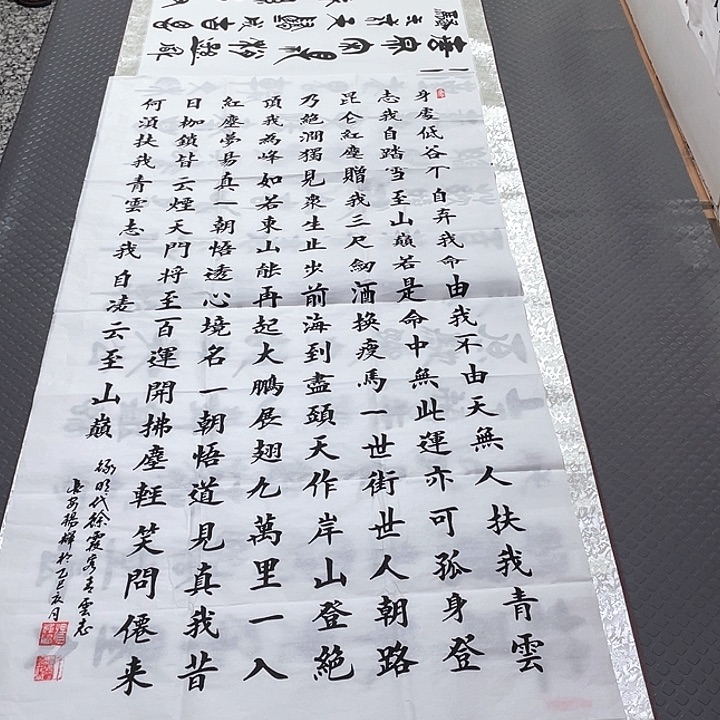 身處低谷不自弃我命由我不由天無人扶我青雲
志我自踏雪至山巔若是命中無此運亦可孤身登
昆仑紅塵贈我三尺劒酒換瘦馬一世街世人朝路
乃絕澗獨見衆生止步前海到盡頭天作岸山登絕
頂我為峰如若東山能再起大鵬展翅九萬里一入
紅塵夢易真一朝悟透心境名一朝悟道見真我昔
日枷鎖皆云煙天門將至百運開拂塵輕笑問僊来
何須扶我青雲志我自凌云至山巔
錄明代徐霞客青雲志
長安楊輝於乙巳亥月